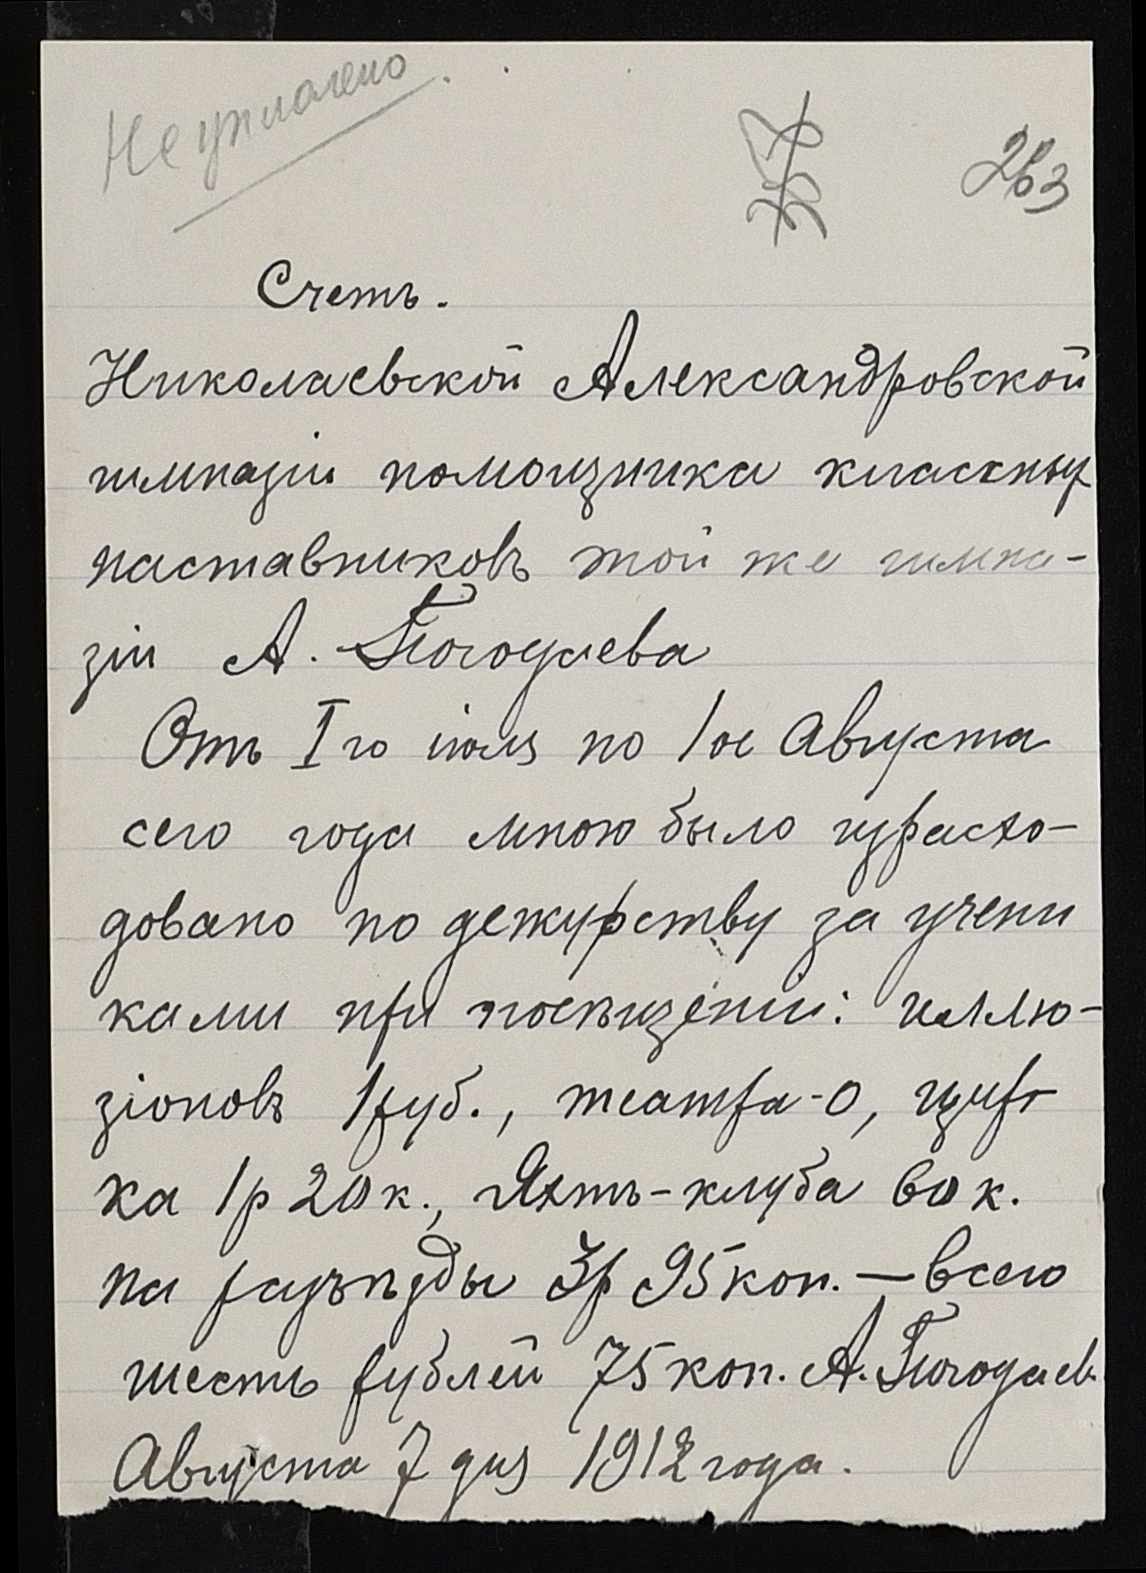 Не уплачено.
263
Счетъ.
Николаевской Александровской
гимназіи помощника классных
наставниковъ той же гимна-
зіи А. Погодаева
Отъ I го іюля по 1ое Августа
сего года мною было израсхо-
довано по дежурству за учени
ками при посѣщеніи: иллю-
зіоновъ 1 руб., театра - 0, цир
ка 1р 20 к., Яхтъ-клуба 60 к.
на разъѣзды 3р 95 коп. — всего
шесть рублей 75 коп. А. Погодаев
Августа 7 дня 1912 года.